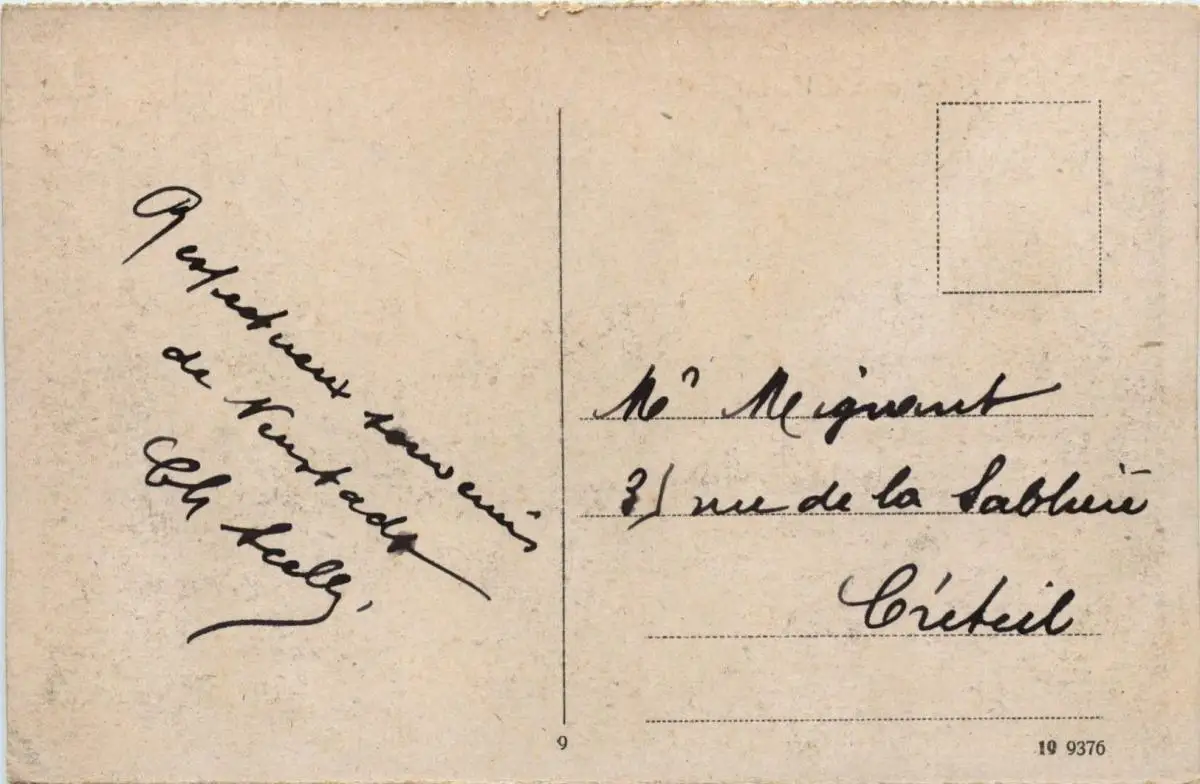 Respectueux souvenirs
de Neustadt
Ch
Mr Meignant
31 rue de la Sablière
Créteil
9
19 9376